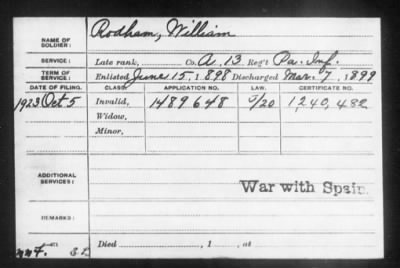 NAME OF SOLDIER: Rodham, William
SERVICE: Late rank, Co. A, 13 Reg't Pa. Inf.
TERM OF SERVICE: Enlisted June 15, 1898 Discharged Mar. 7, 1899
DATE OF FILING. CLASS. APPLICATION NO. LAW. CERTIFICATE NO.
1923 Oct 5 Invalid, 1489648 1,240,482
Widow,
Minor,
ADDITIONAL SERVICES: War with Spain.
REMARKS:
Died , 1 , at